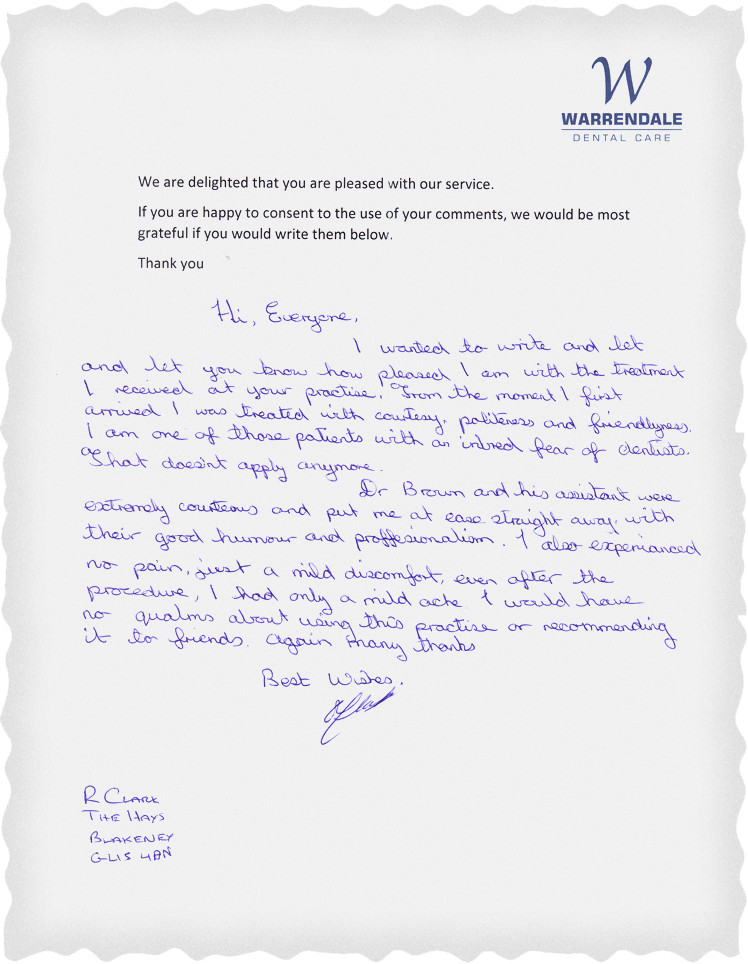 W
WARRENDALE
DENTAL CARE
We are delighted that you are pleased with our service.
If you are happy to consent to the use of your comments, we would be most
grateful if you would write them below.
Thank you
Hi, Everyone,
I wanted to write and let
and let you know how pleased I am with the treatment
I received at your practise. From the moment I first
arrived I was treated with courtesy, politeness and friendlyness.
I am one of those patients with an inbred fear of dentists.
That doesn't apply anymore.
Dr Brown and his assistant were
extremely courteous and put me at ease straight away with
their good humour and proffesionalism. I also experianced
no pain, just a mild discomfort, even after the
procedure, I had only a mild ache. I would have
no qualms about using this practise or recommending
it to friends. Again many thanks
Best Wishes.
R CLARK
THE HAYS
BLAKENEY
GL15 4BN